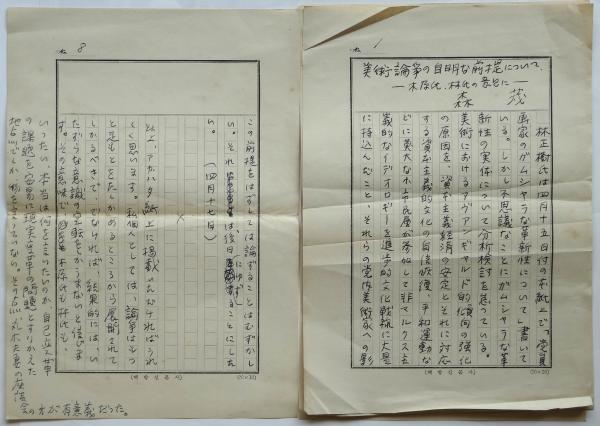 No. 1
美術論争の自明な前提について
―木原氏、林氏の発言に―
森 茂
林正樹氏は四月十五日付の本紙上で「党員
画家のガムシャラな革新性について」書いて
いる。しかし不思議なことにガムシャラな革
新性の実体について分析検討を怠っている。
美術におけるアヴァンギャルド的傾向の強化
の原因を、資本主義経済の安定とそれに対応
する資本主義的文化の自信恢復、平和運動な
どに莫大な小市民層が参加して非マルクス主
義的なイデオロギーを進歩的文化戦線に大量
に持込んだこと、それらの党外美術家への影
(20×10)
No. 8
この前提をはずしては論ずることはむずかし
い。それについては後日にゆずることにした
い。 (四月十七日)
×
以上、アカハタ紙上に掲載いただければうれ
しく思います。私個人としては、論争はもっ
と足もとをたしかめるところから展開されて
しかるべきで、でなければ、結果的には、い
たずらな意識の空転をかうまいと信じま
す。その意味で木原氏も林氏も、
いったい、本当は何を言いたいのか、自己
の課題を安易に現実の問題とすりかえた
地点でしか物を言っていない。その点、丸木夫妻の座談
会の方が有意義だった。
(20×10)